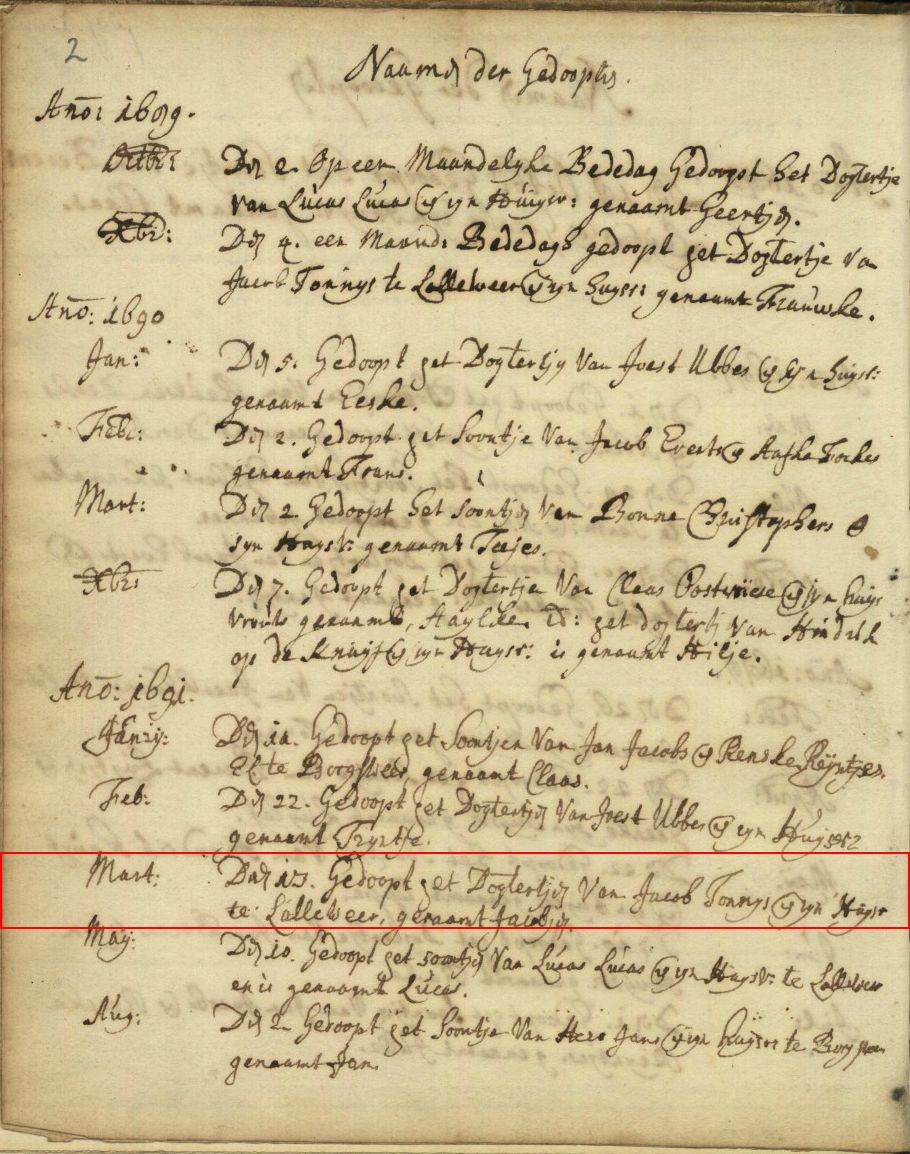 2
Naamen der Gedoopten.
Anno: 1689.
Octbr: Den 2. Op een Maandelyke Bededag Gedoopt het Dogtertje
van Lucas Lucas en syn Huisvr: genaamt Geertjen.
Xbr: Den 4. een Maand: Bededags gedoopt het Dogtertje van
Jacob Tonnys te Lalleweer en syn huysvr: genaamt Frauwke.
Anno: 1690
Jan: Den 5. Gedoopt het Dogtertjen Van Joest Ubbes en syn huysvr:
genaamt Eeske.
Febr: Den 2. Gedoopt het Soontje Van Jacob Everts en Aafke Fockes
genaamt Frans.
Mart: Den 2. Gedoopt het soontjen Van Bonne Christophers en
syn Huysvr: genaamt Teejes.
Xbr: Den 7. Gedoopt het Dogtertje Van Claas en syn huys
vrouw genaamt, Haylke. id: het dogtertj van Hindrik
op de Knuijf en syn Huysvr: is genaamt Hilje.
Anno: 1691.
Janry: Den Gedoopt het Soontjen Van Jan Jacobs en Renske Reyntjes.
te Borgsweer, genaamt Claas.
Feb: Den 22. Gedoopt het Dogtertjen Van Joest Ubbes en syn Huysvr
genaamt Tryntje.
Mart: Den 13. Gedoopt het Dogtertjen Van Jacob Tonnys en syn Huysvr
te Lalleweer, genaamt Jacobjen.
May: Den 10. Gedoopt het soontjen Van Lucas Lucas en syn Huysvr: te Lalleweer
en is genaamt Lucas.
Aug: Den 2. Gedoopt het Soontje Van Hero Jans en syn huysvr te
genaamt Jan.